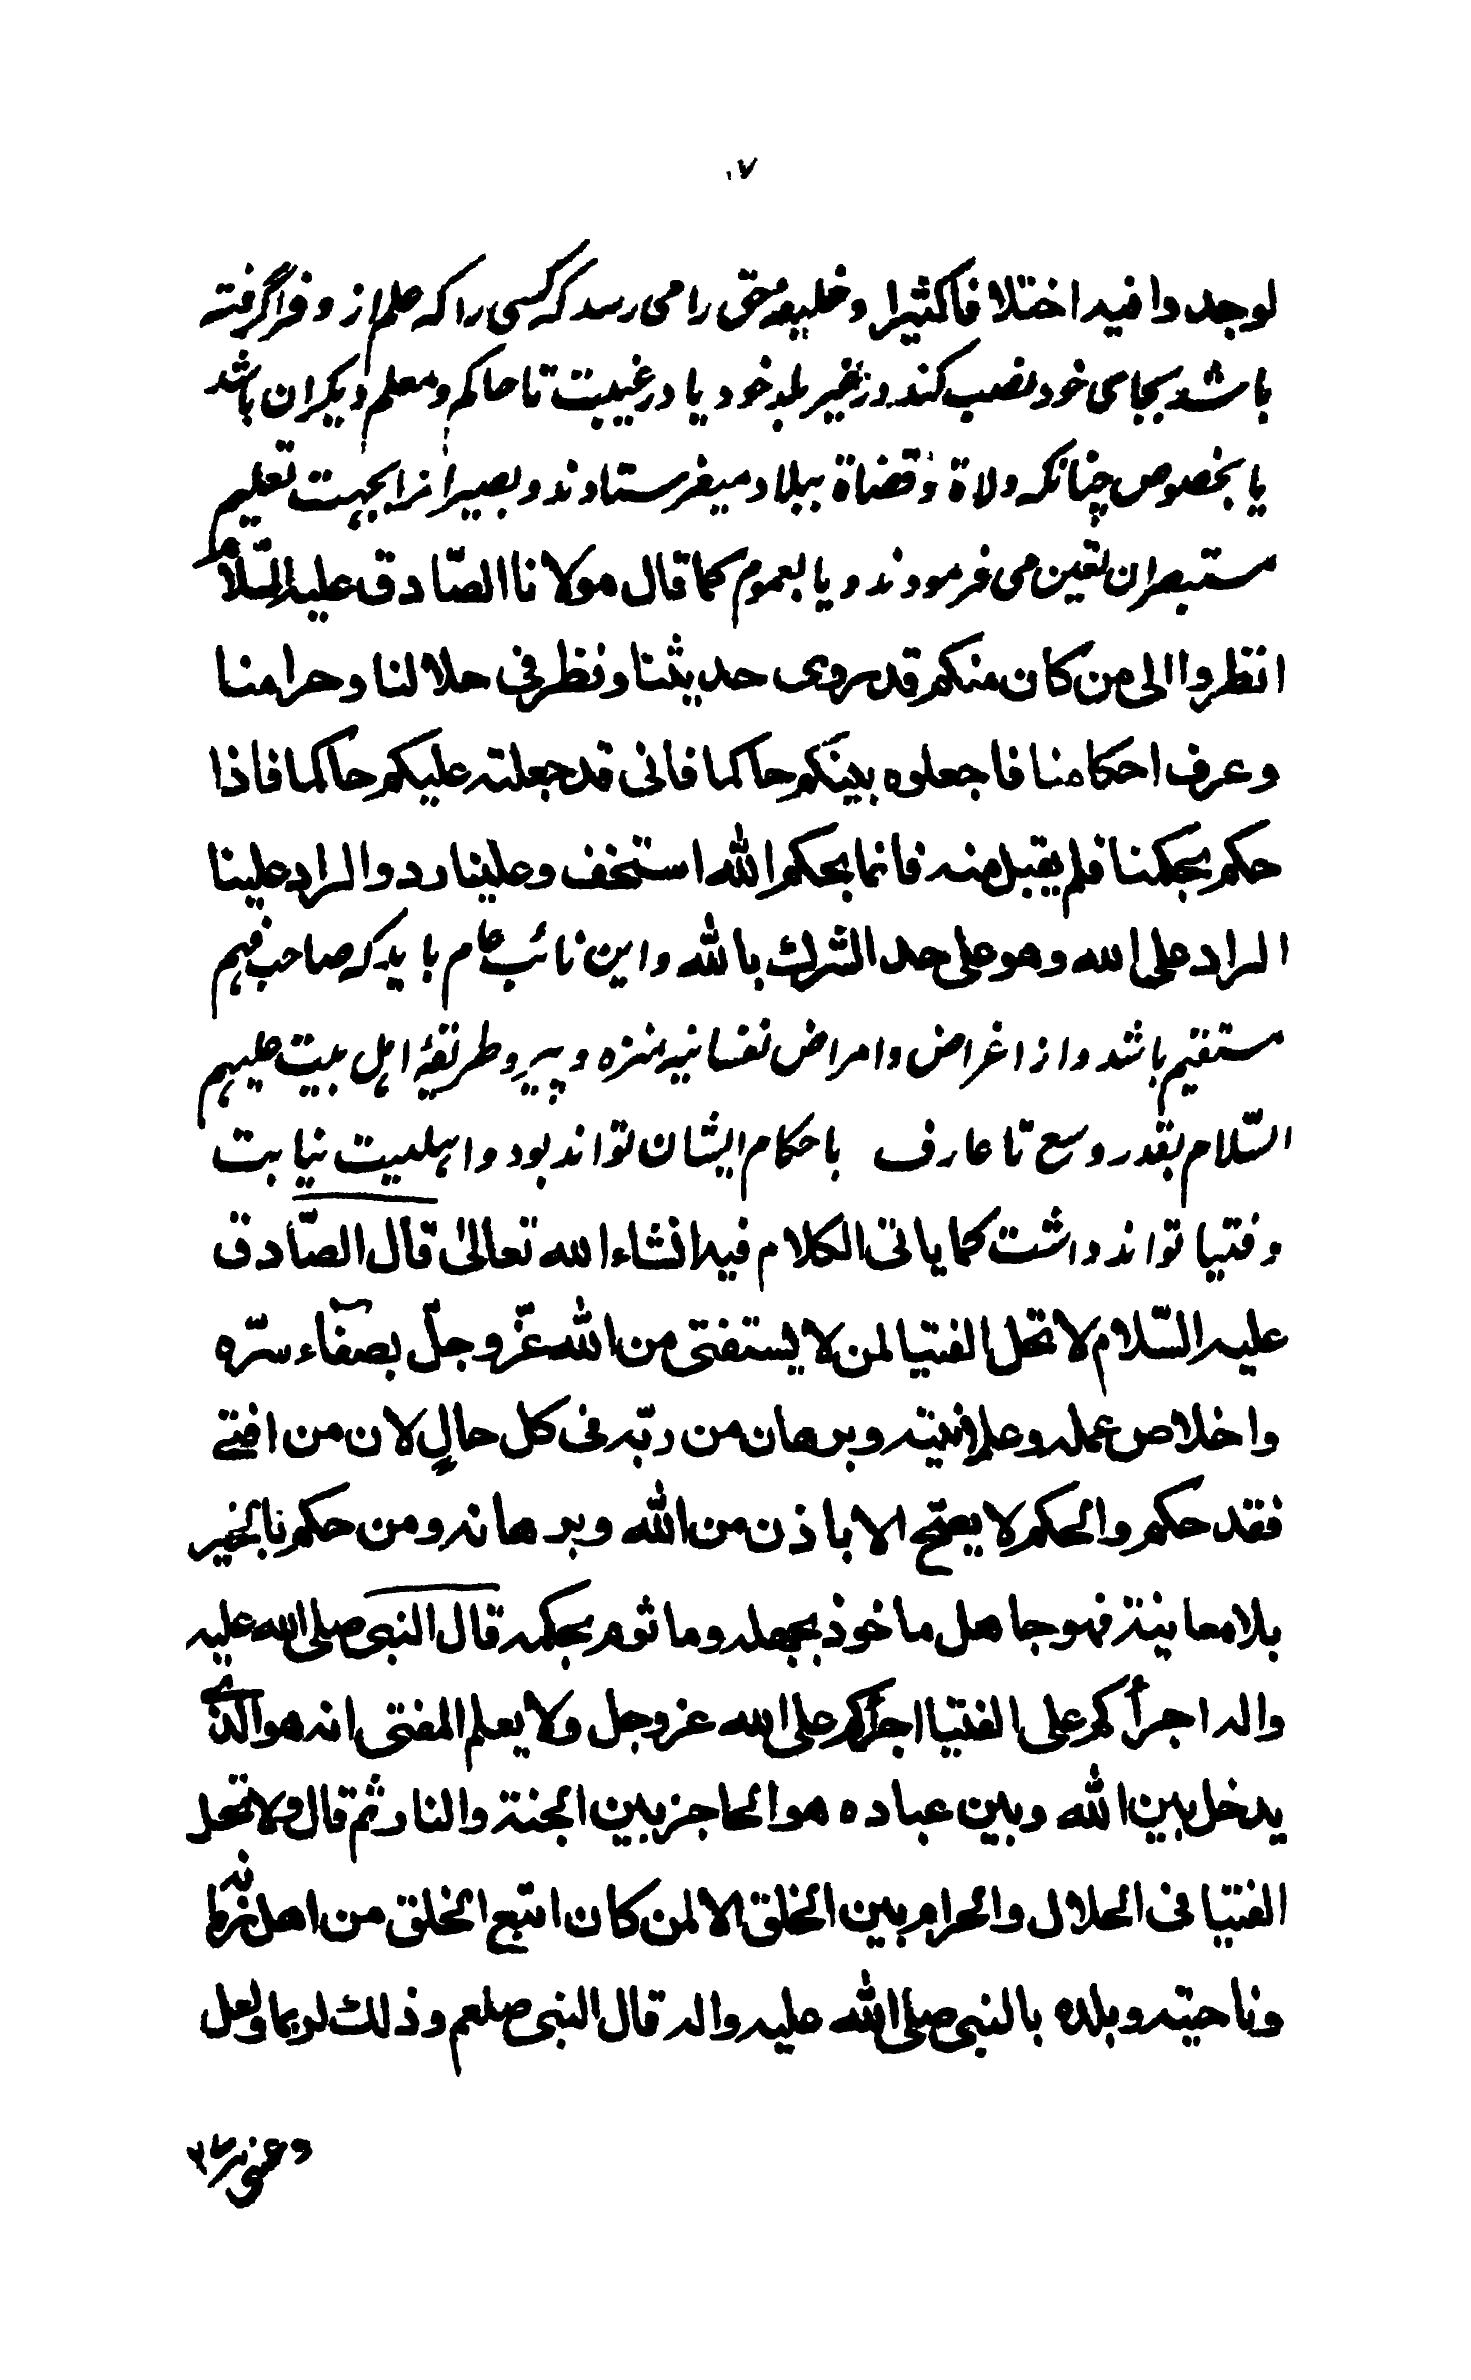 ۱۷
لوجدوا فيه اختلافا كثيرا و خليفه حق را مى رسد كه كسى را كه علم از و فرا گرفته
باشد بجاى خود نصب كند در غير بلد خود يا در غيبت تا حاكم و معلم ديكران باشد
يا بخصوص چنانكه ولاة و قضاة ببلاد ميفرستادند و بصيرانرا بجهت تعليم
مستبصران تعين مى فرمودند و يا بعموم كما قال مولانا الصّادق عليه السّلام
انظروا الى من كان منكم قد روى حديثنا و نظر فى حلالنا و حرامنا
و عرف احكامنا فاجعلوه بينكم حاكما فانى قد جعلته عليكم حاكما فاذا
حكم بحكمنا فلم يقبل منه فانما بحكم الله استخف و علينا رد و الراد علينا
الراد على الله و هو على حد الشرك بالله و اين نائب عام بايد كه صاحب فهم
مستقيم باشد و از اغراض و امراض نفسانيه منزه و پيرو طريقهٔ اهل بيت عليهم
السّلام بقدر وسع تا عارف باحكام ايشان تواند بود و اهليت نيابت
و فتيا تواند داشت كما ياتى الكلام فيه انشاء الله تعالىٰ قال الصّادق
عليه السّلام لا تحل الفتيا لمن لا يستفتى من الله عزّ و جلّ بصفاء سرّه
و اخلاص عمله و علانيته و برهان من ربّه فى كل حالٍ لان من افتى
فقد حكم و الحكم لا يصحّ الا باذن من الله و برهانه و من حكم بالخبر
بلا معاينة فهو جاهل ماخوذ بجهله و ماثوم بحكمه قال النبى صلى الله عليه
و اله اجرأكم على الفتيا اجرأكم على الله عز و جل و لا يعلم المفتى انه هو الذى
يدخل بين الله و بين عباده هو الحاجز بين الجنة و النار ثم قال و لا تحل
الفتيا فى الحلال و الحرام بين الخلق الا لمن كان اتبع الخلق من اهل زمانه
و ناحيته و بلده بالنبى صلى الله عليه و اله قال النبى صلعم و ذلك لربما و لعل